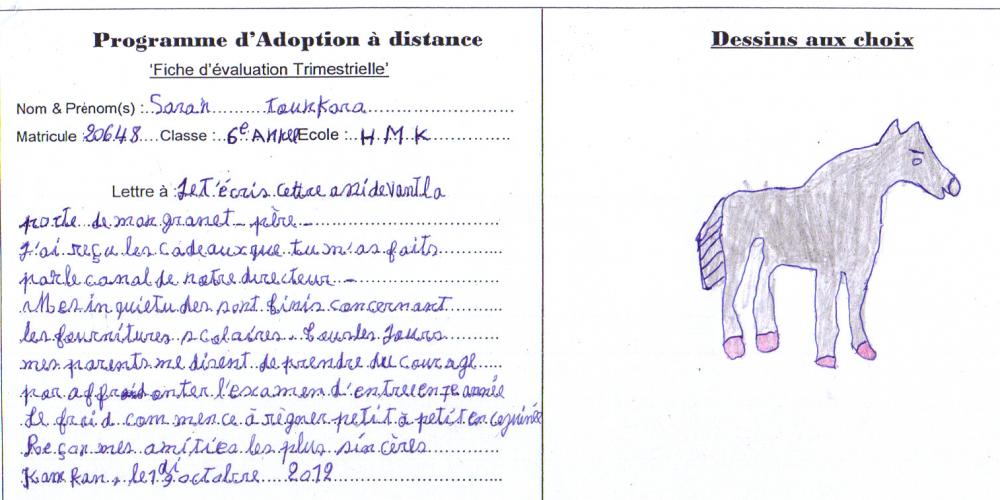 Programme d'Adoption à distance
'Fiche d'évaluation Trimestrielle'
Nom & Prénom(s) : Sarah Tounkara
Matricule 20648 Classe : 6e Année Ecole : H.M.K
Lettre à : Je t'écris cettre assi devant la
porte de mon granet-père
J'ai reçu les cadeaux que tu m'as faits
par le canal de notre directeur
Mes inquietudes sont finis concernant
les fournitures scolaires. Tous les Jours
mes parents me disent de prendre du courage
par affronter l'examen d'entre en 7e année
Le froid commence à règner petit à petit en
Reçor mes amitiés les plus sincères
Kankan, le octobre 2012
Dessins aux choix